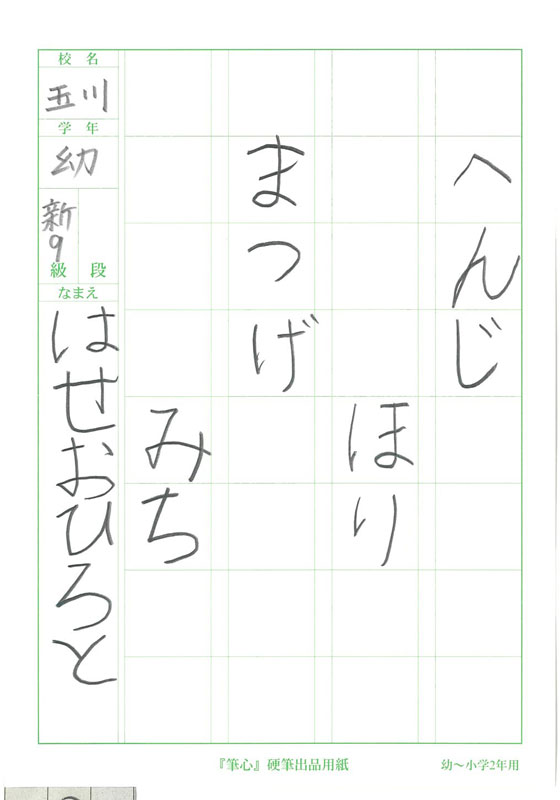 へんじ
ほり
まつげ
みち
校名
玉川
学年
幼
新9
級 段
なまえ
はせおひろと
『筆心』硬筆出品用紙
幼～小学2年用